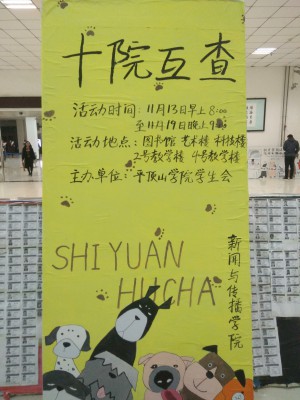 十院互查
活动时间：11月13日早上8:00
至11月19日晚上9:00
活动地点：图书馆 艺术楼 科技楼
2号教学楼 4号教学楼
主办单位：平顶山学院学生会
SHIYUAN
HUCHA
新闻与传播学院